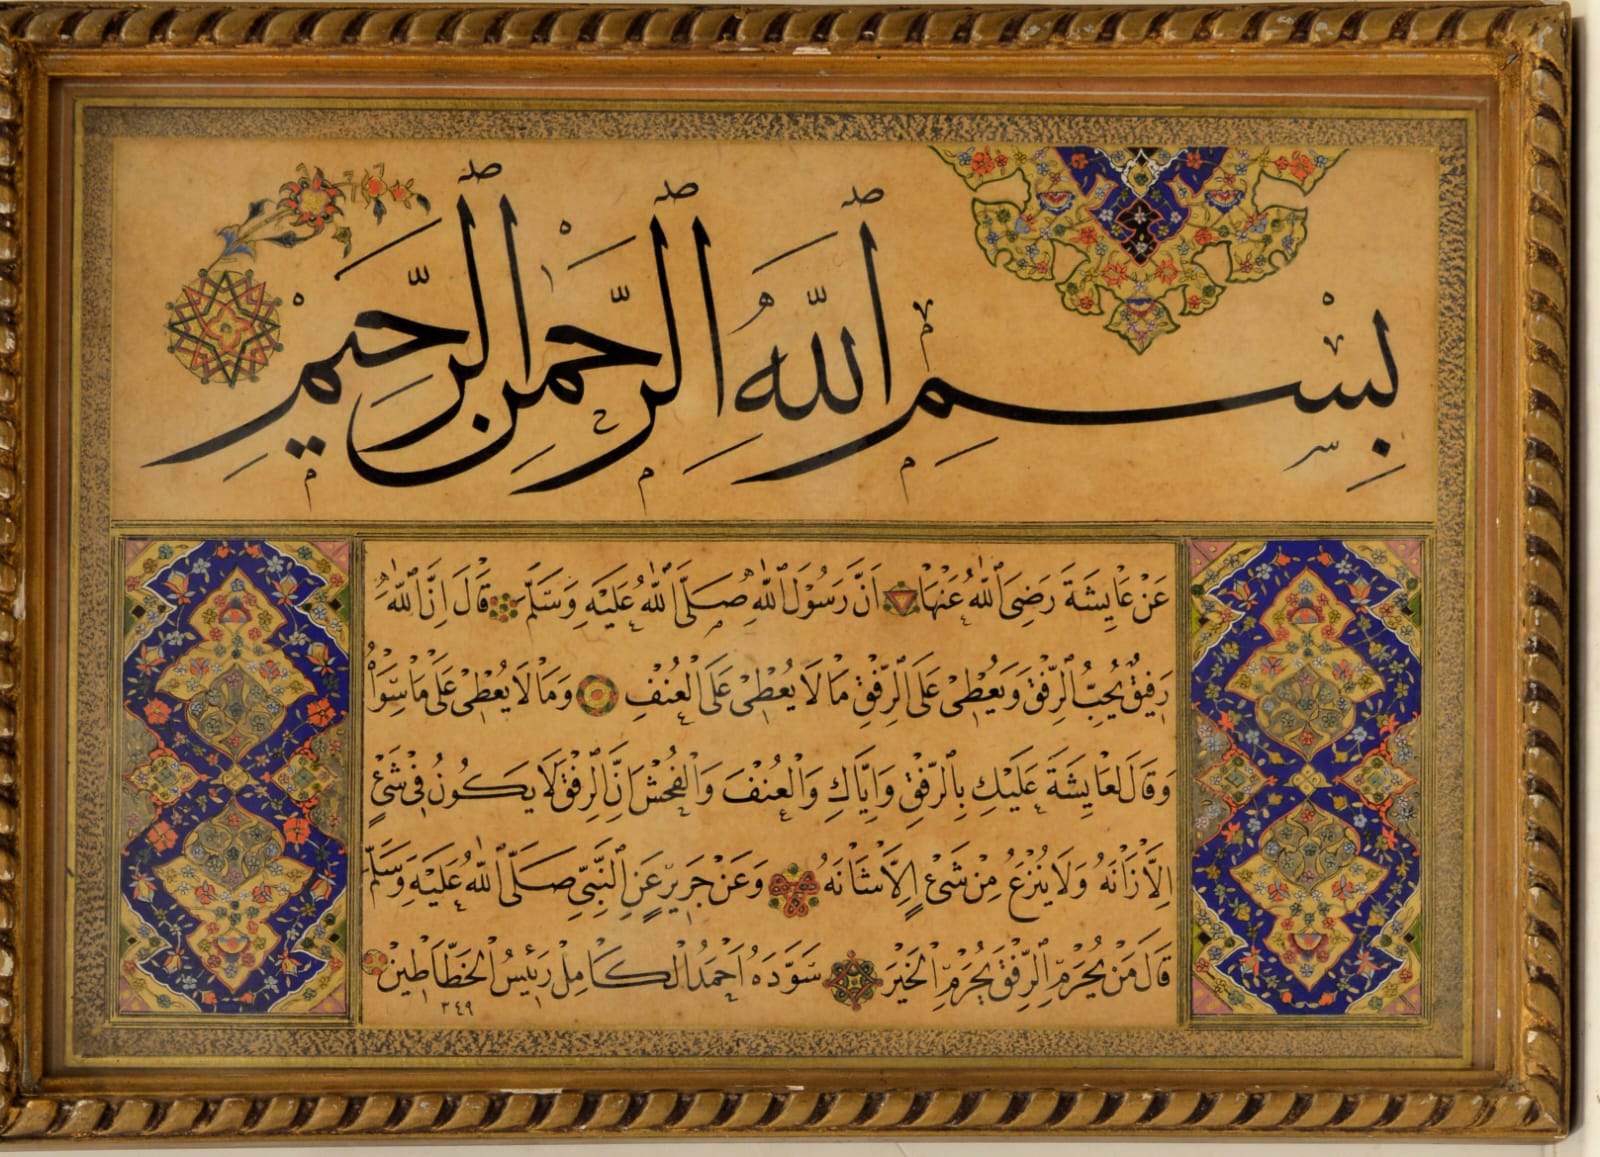 بِسْمِ ٱللَّهِ ٱلرَّحْمٰنِ ٱلرَّحِيمِ
عَنْ عَايِشَةَ رَضِيَ ٱللَّهُ عَنْهَا اَنَّ رَسُولَ ٱللَّهِ صَلَّى ٱللَّهُ عَلَيْهِ وَسَلَّمَ قَالَ اِنَّ ٱللَّهَ
رَفِيقٌ يُحِبُّ ٱلرِّفْقَ وَيُعْطِى عَلَى ٱلرِّفْقِ مَا لَا يُعْطِى عَلَى ٱلْعُنْفِ وَمَا لَا يُعْطِى عَلَى مَا سِوَاهُ
وَقَالَ لِعَايِشَةَ عَلَيْكِ بِٱلرِّفْقِ وَاِيَّاكِ وَٱلْعُنْفَ وَٱلْفُحْشَ اِنَّ ٱلرِّفْقَ لَا يَكُونُ فِى شَىْءٍ
اِلَّا زَانَهُ وَلَا يُنْزَعُ مِنْ شَىْءٍ اِلَّا شَانَهُ وَعَنْ جَرِيرٍ عَنِ ٱلنَّبِىِّ صَلَّى ٱللَّهُ عَلَيْهِ وَسَلَّمَ
قَالَ مَنْ يُحْرَمِ ٱلرِّفْقَ يُحْرَمِ ٱلْخَيْرَ سَوَّدَهُ اَحْمَدُ ٱلْكَامِلْ رَئِيسُ ٱلْخَطَّاطِينْ
٣٤٩